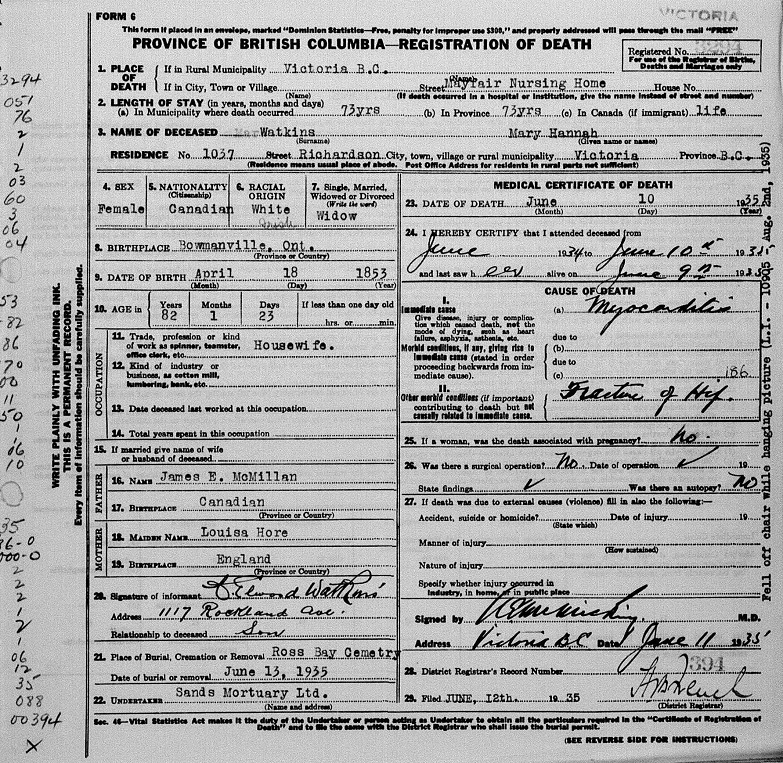 VICTORIA
FORM 6
This form if placed in an envelope, marked "Dominion Statistics—Free, penalty for improper use $300," and properly addressed will pass through the mail "FREE"
PROVINCE OF BRITISH COLUMBIA—REGISTRATION OF DEATH
Registered No. 3294
For use of the Registrar of Births, Deaths and Marriages only
1. PLACE OF DEATH
If in Rural Municipality Victoria B.C.
(Name)
If in City, Town or Village (Name) Street Mayfair Nursing Home House No.
(If death occurred in a hospital or institution, give the name instead of street and number)
2. LENGTH OF STAY (in years, months and days)
(a) In Municipality where death occurred 73yrs (b) In Province 73yrs (c) In Canada (if immigrant) life
3. NAME OF DECEASED Watkins Mary Hannah
(Surname) (Given name or names)
RESIDENCE No. 1037 Street Richardson City, town, village or rural municipality Victoria Province B.C.
(Residence means usual place of abode. Post Office Address for residents in rural parts not sufficient)
4. SEX Female
5. NATIONALITY (Citizenship) Canadian
6. RACIAL ORIGIN White
Irish
7. Single, Married, Widowed or Divorced (Write the word) Widow
8. BIRTHPLACE Bowmanville, Ont.
(Province or Country)
9. DATE OF BIRTH April 18 1853
(Month) (Day) (Year)
10. AGE in Years 82 Months 1 Days 23 If less than one day old hrs. or min.
OCCUPATION
11. Trade, profession or kind of work as spinner, teamster, office clerk, etc. Housewife.
12. Kind of industry or business, as cotton mill, lumbering, bank, etc.
13. Date deceased last worked at this occupation
14. Total years spent in this occupation
15. If married give name of wife or husband of deceased
FATHER
16. NAME James E. McMillan
17. BIRTHPLACE Canadian
(Province or Country)
MOTHER
18. MAIDEN NAME Louisa Hore
19. BIRTHPLACE England
(Province or Country)
20. Signature of informant Elwood Watkins
Address 1117 Rockland Ave.
Relationship to deceased Son
21. Place of Burial, Cremation or Removal Ross Bay Cemetry
Date of burial or removal June 13, 1935
22. UNDERTAKER Sands Mortuary Ltd.
(Name and address)
MEDICAL CERTIFICATE OF DEATH
23. DATE OF DEATH June 10 1935
(Month) (Day) (Year)
24. I HEREBY CERTIFY that I attended deceased from
June 1934 to June 10th 1935
and last saw her alive on June 9th 1935
CAUSE OF DEATH
I.
Immediate cause
Give disease, injury or complication which caused death, not the mode of dying, such as heart failure, asphyxia, asthenia, etc.
(a) Myocarditis
due to
Morbid conditions, if any, giving rise to immediate cause (stated in order proceeding backwards from immediate cause).
(b)
due to
(c) 186
II.
Other morbid conditions (if important) contributing to death but not causally related to immediate cause.
Fracture of Hip.
25. If a woman, was the death associated with pregnancy? No.
26. Was there a surgical operation? No. Date of operation ✓ 19
State findings ✓ Was there an autopsy? No
27. If death was due to external causes (violence) fill in also the following:—
Accident, suicide or homicide? Date of injury 19
(State which)
Manner of injury
(How sustained)
Nature of injury
Specify whether injury occurred in industry, in home, or in public place
Signed by M.D.
Address Victoria BC Date June 11 1935
28. District Registrar's Record Number 394
29. Filed JUNE, 12th. 19 35
(District Registrar)
Sec. 46—Vital Statistics Act makes it the duty of the Undertaker or person acting as Undertaker to obtain all the particulars required in the "Certificate of Registration of Death" and to file the same with the District Registrar who shall issue the burial permit.
(SEE REVERSE SIDE FOR INSTRUCTIONS)
WRITE PLAINLY WITH UNFADING INK.
THIS IS A PERMANENT RECORD.
Every item of information should be carefully supplied.
Fell off chair while hanging picture (L.I. - 10905 - Aug. 2nd, 1935)
3294
051
76
2
1
2
03
60
3
06
04
53
82
86
70
00
11
50
1
06
10
35
36-0
000-0
2
2
2
1
2
1
06
12
35
088
00394
X